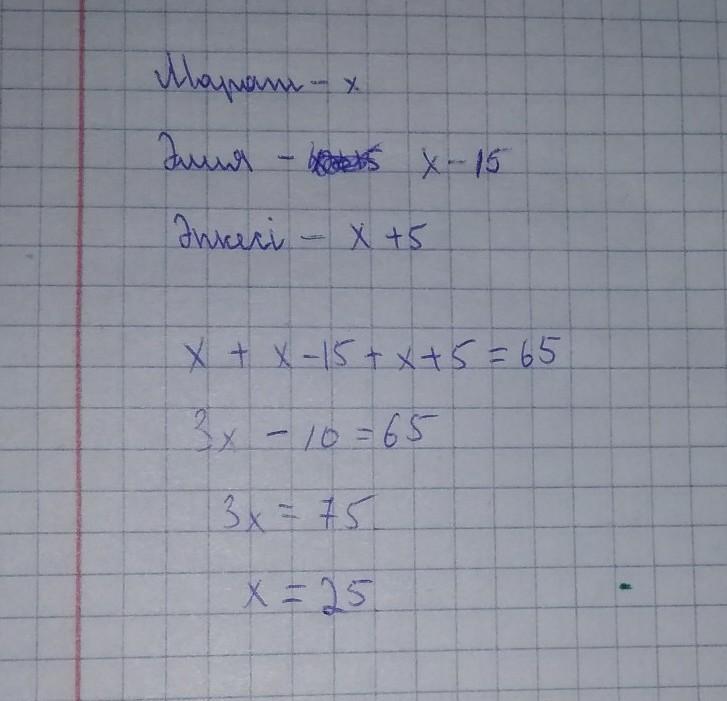 Марат - x
Әлия - x - 15
Әпкесі - x + 5
x + x - 15 + x + 5 = 65
3x - 10 = 65
3x = 75
x = 25